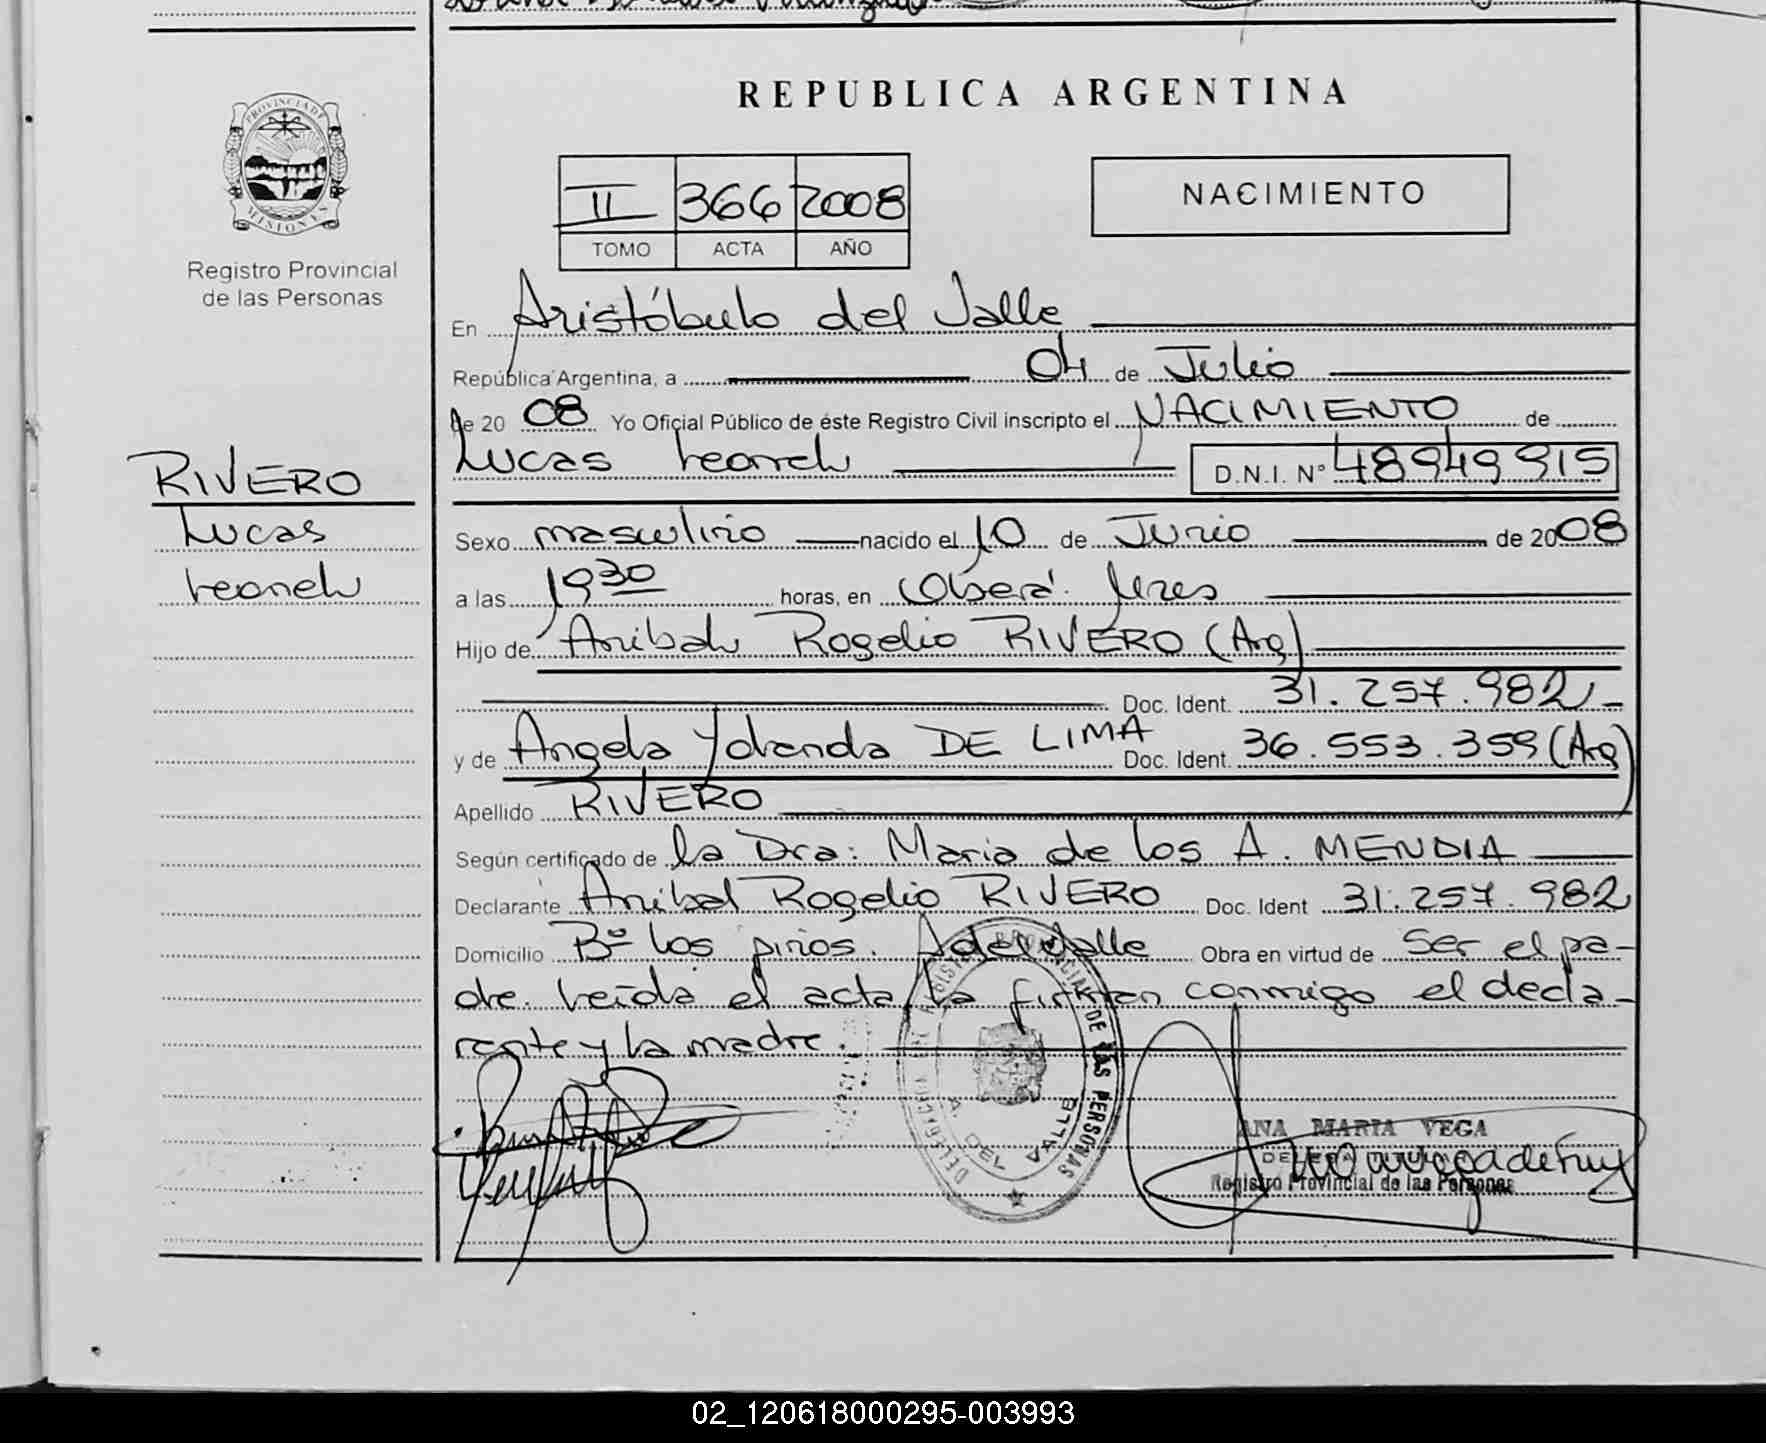 REPUBLICA ARGENTINA
PROVINCIA DE
MISIONES
Registro Provincial
de las Personas
II 366 2008
TOMO ACTA AÑO
NACIMIENTO
En Aristóbulo del Valle
República Argentina, a 04 de Julio
de 20 08 Yo Oficial Público de éste Registro Civil inscripto el NACIMIENTO de
Lucas Leonel D.N.I. N° 48949915
RIVERO
Lucas
Leonel
Sexo masculino nacido el 10 de Junio de 2008
a las 19 30 horas, en Oberá. Mnes
Hijo de Anibal Rogelio RIVERO (Arg)
Doc. Ident. 31.257.982
y de Angela Yolanda DE LIMA Doc. Ident. 36.553.359 (Arg)
Apellido RIVERO
Según certificado de la Dra: Maria de los A. MENDIA
Declarante Anibal Rogelio RIVERO Doc. Ident 31.257.982
Domicilio Bº los pinos. A del Valle Obra en virtud de ser el pa-
dre. Leída el acta, la firman conmigo el decla-
rante y la madre.
DELEGACION REGISTRO PROVINCIAL DE LAS PERSONAS
A. DEL VALLE
ANA MARIA VEGA
Registro Provincial de las Personas
02_120618000295-003993